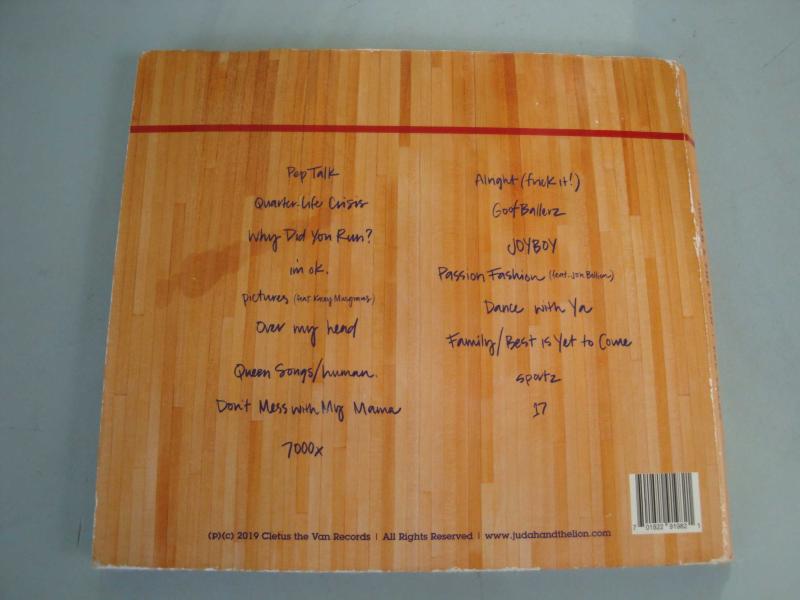 Pep Talk
Quarter-Life Crisis
Why Did You Run?
i'm ok.
pictures (feat. Kacey Musgraves)
Over my head
Queen Songs/human.
Don't Mess with My Mama
7000x
Alright (frick it!)
GoofBallerz
JOYBOY
Passion Fashion (feat. Jon Bellion)
Dance with Ya
Family/Best is Yet to Come
sportz
17
(p)(c) 2019 Cletus the Van Records | All Rights Reserved | www.judahandthelion.com
7 01822 91982 1